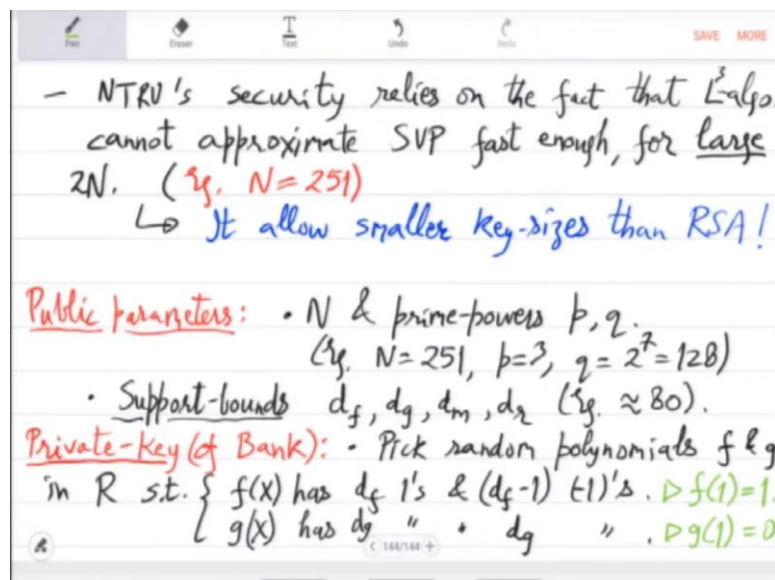 Pen Eraser Text Undo Redo SAVE MORE
- NTRU's security relies on the fact that L³-algo.
cannot approximate SVP fast enough, for large
2N. (Eg. N=251)
↳ It allow smaller key-sizes than RSA!
Public parameters: • N & prime-powers p, q.
(Eg. N=251, p=3, q=2⁷=128)
• Support-bounds d_f, d_g, d_m, d_r (Eg. ≈80).
Private-key (of Bank): • Pick random polynomials f & g
in R s.t. { f(x) has d_f 1's & (d_f-1) (-1)'s. ▷ f(1)=1.
g(x) has d_g " " d_g ". ▷ g(1)=0
< 144/144 +